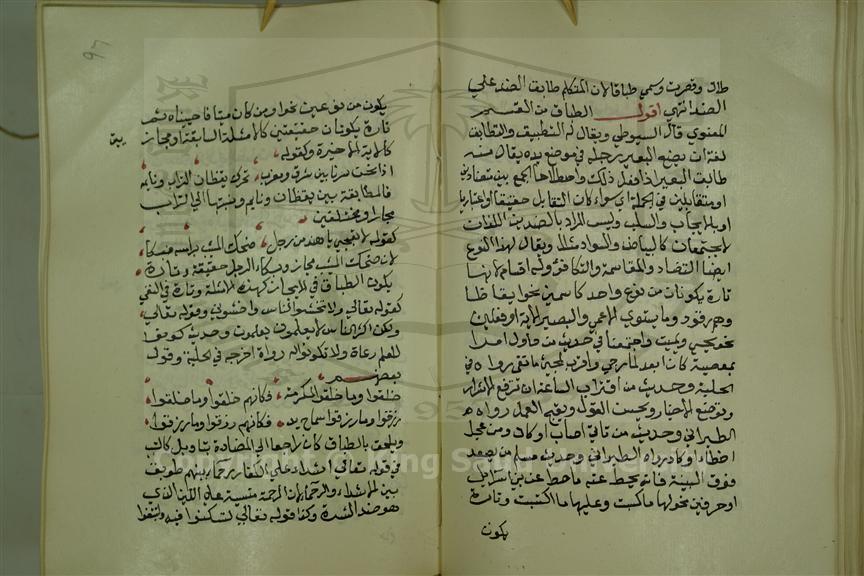 طلاق وقصرت وسمي طباقا لان المتكلم طابق الضد على
الضد انتهى اقول الطباق من القسم
المعنوي قال السيوطي ويقال له التطبيق والتطابق
لغة ان يضع البعير رجله في موضع يده يقال منه
طابق البعير اذا فعل ذلك واصطلاحا الجمع بين متضادين
او متقابلين في الجملة اي سواء كان التقابل حقيقيا او اعتباريا
او بالايجاب والسلب وليس المراد بالضدين اللذان
لا يجتمعان كالبياض والسواد مثلا ويقال لهذا النوع
ايضا التضاد والمقاسمة والتكافؤ وله اقسام لانها
تارة يكونان من نوع واحد كاسمين نحو ايقاظا
وهم رقود وما يستوي الاعمى والبصير الاية او فعلين
نحو يحيي ويميت واجتمعا في حديث من حاول امرا
بمعصية كان ابعد لما رجى واقرب لمجئ ما اتقى رواه في
الحلية وحديث من اقتراب الساعة ان ترفع الاشرار
وتوضع الاخيار ويحسن القول ويقبح العمل رواه
الطبراني وحديث من تانى اصاب او كاد ومن عجل
اخطاء او كاد رواه الطبراني وحديث مسلم من يصعد
فوق الثنية فانه يحط عنه ما حط عن بني اسرائيل
او حرفين نحو لها ما كسبت وعليها ما اكتسبت وتارة
يكون
97
يكون من نوعين نحو او من كان ميتا فاحييناه ثم
تارة يكونان حقيقتين كالامثلة السابقة او مجازيين
كالاية الاخيرة وكقوله
اذا نحن سرنا بين شرق ومغرب، تحرك يقظان التراب ونايمه
فالمطابقة بين يقظان ونايم ونسبتها الى التراب
مجاز او مختلفين
كقوله لا تعجبي يا هند من رجل، ضحك المشيب براسه فبكا
لان ضحك المشيب مجاز وبكاء الرجل حقيقة وتارة
يكون الطباق في الايجاب كهذه الامثلة وتارة في النفي
كقوله تعالى ولا تخشوا الناس واخشوني وقوله تعالى
ولكن اكثر الناس لا يعلمون يعلمون وحديث كونوا
للعلم رعاة ولا تكونوا له رواة اخرجه في الحلية وقول
بعضهم
خلقوا وما خلقوا لمكرمة، فكانهم خلقوا وما خلقوا
رزقوا وما رزقوا سماح يد، فكانهم رزقوا وما رزقوا
ويلحق بالطباق كان راجعا الى المضادة بتاويل كالتي
في قوله تعالى اشداء على الكفار رحماء بينهم طوبق
بين الاشداء والرحماء لان الرحمة مسببة على اللين الذي
هو ضد الشدة وكذا قوله تعالى لتسكنوا فيه ولتبتغوا
Copyright © King Saud University